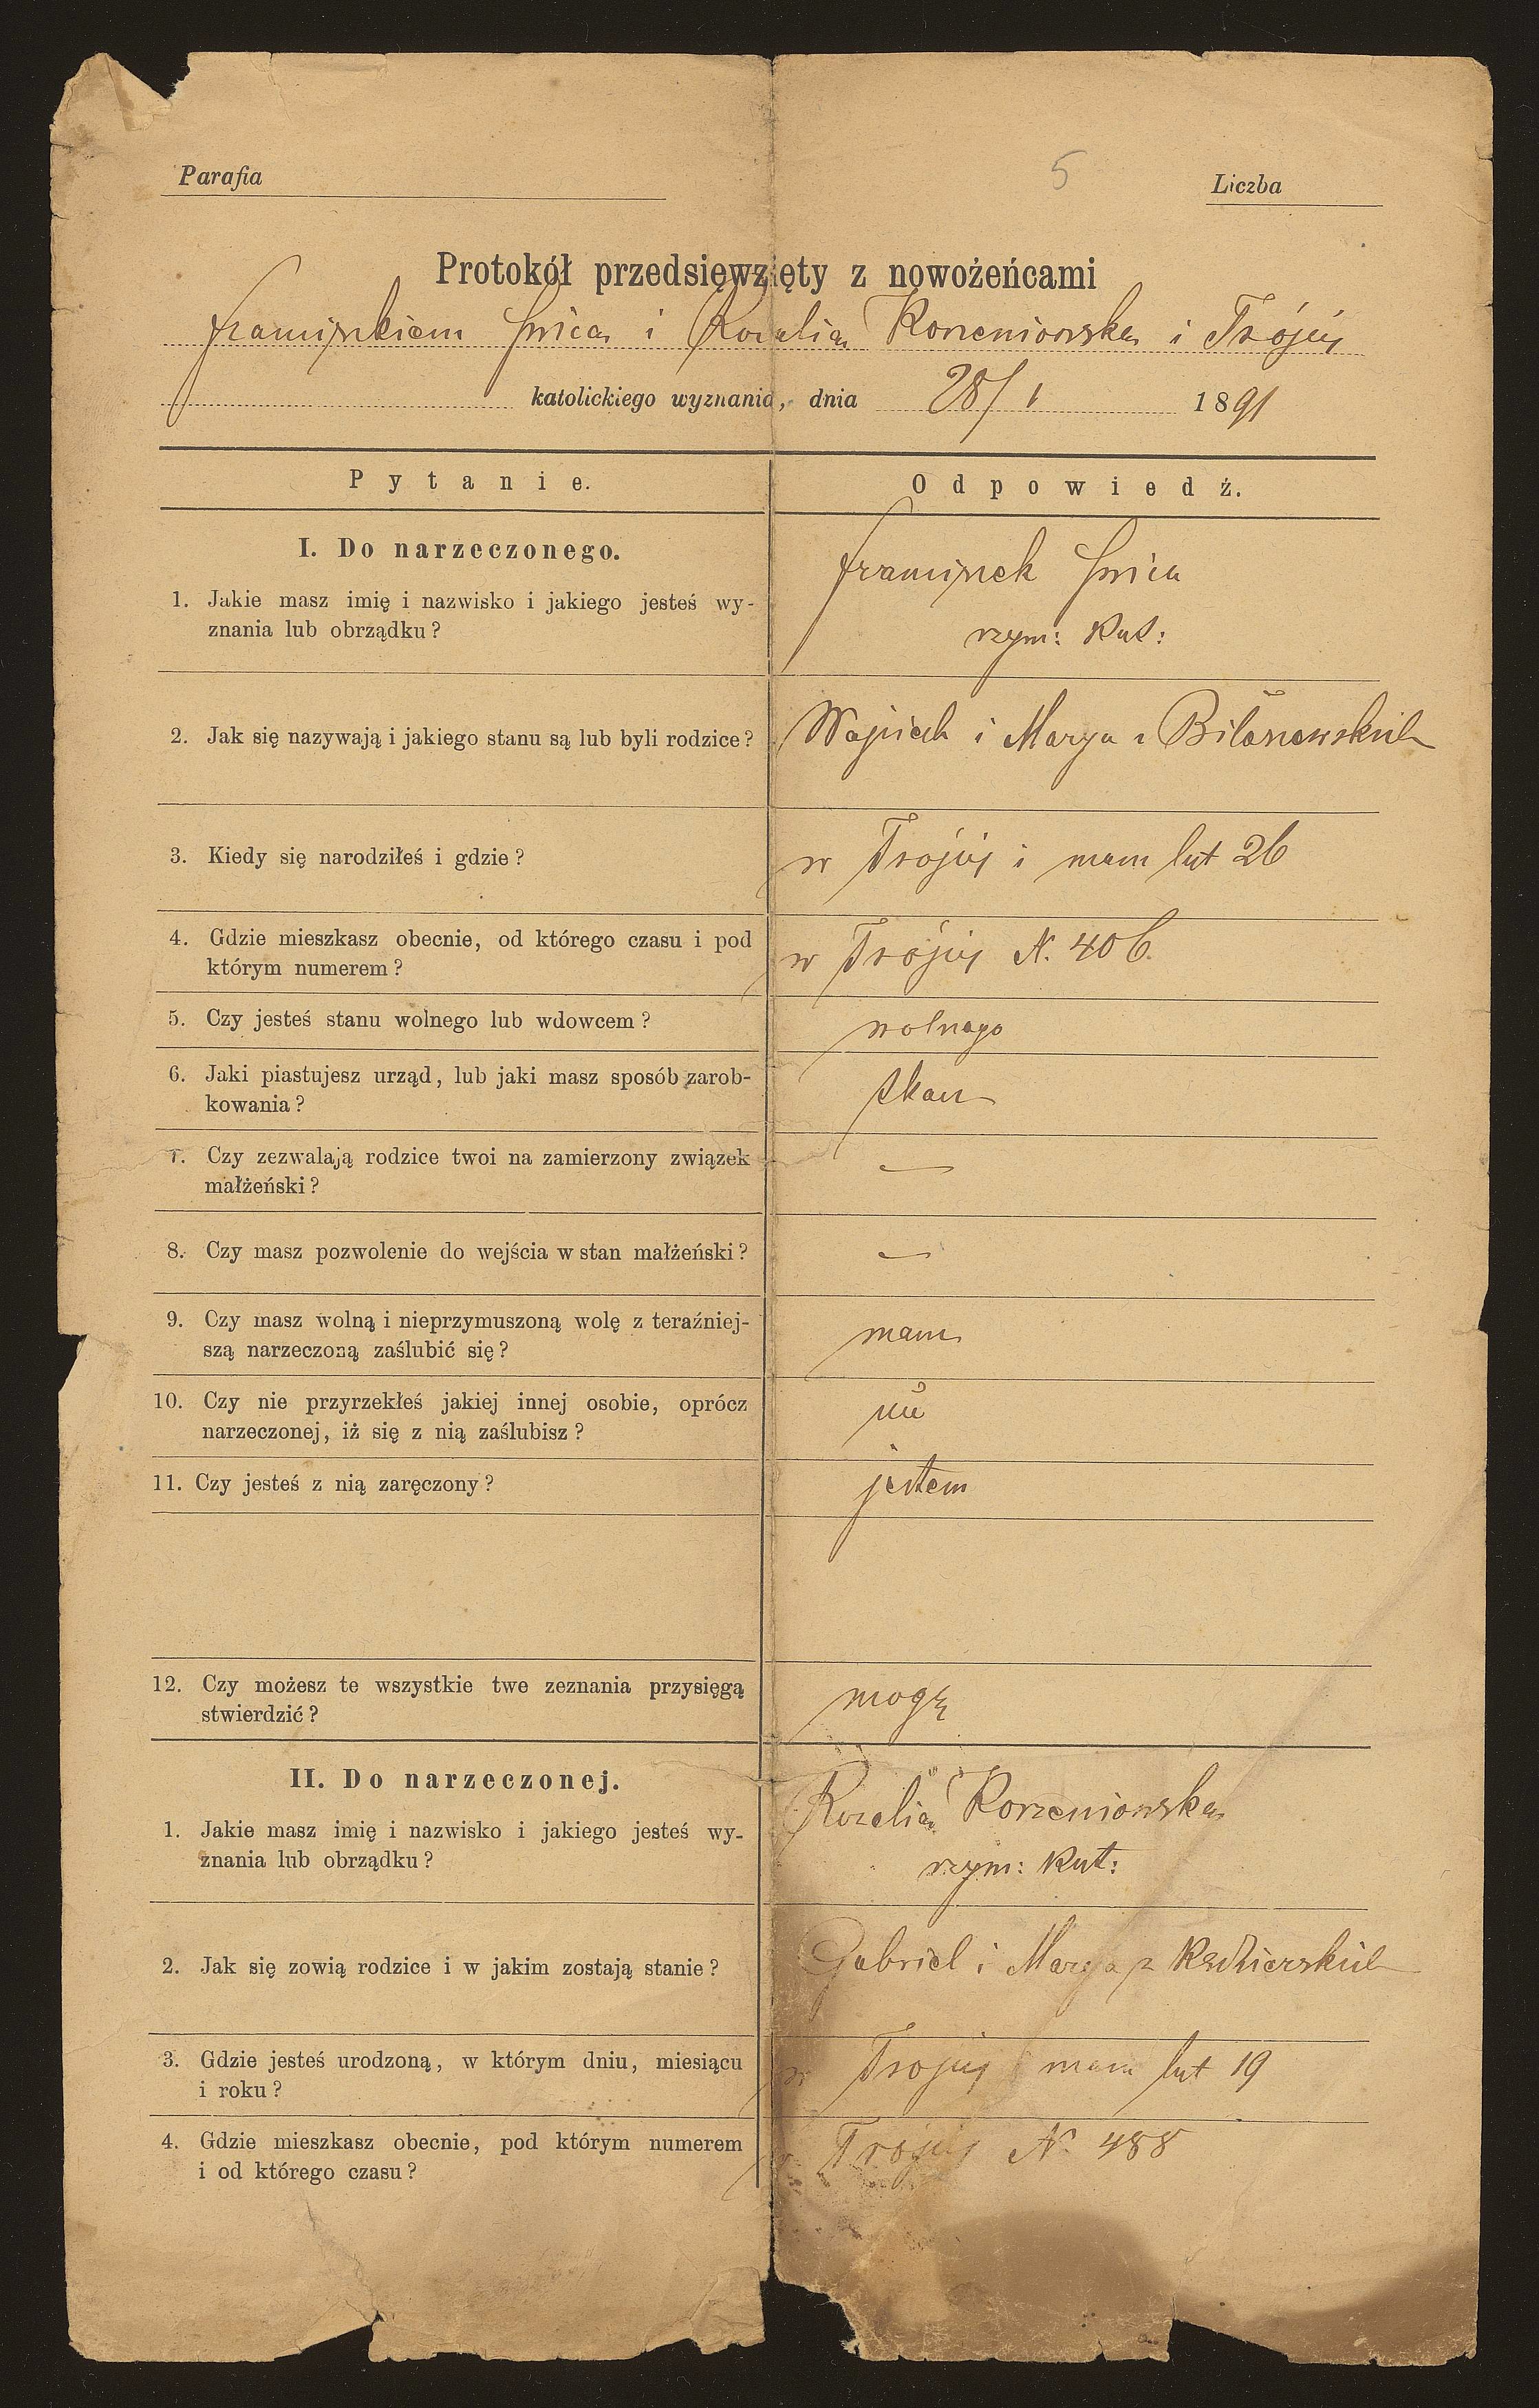 Parafia
5
Liczba
Protokół przedsięwzięty z nowożeńcami
Franciszkiem i Rozalią Korzeniowską z Trójcy
katolickiego wyznania, dnia 28/1 1891
Pytanie.
Odpowiedź.
I. Do narzeczonego.
1. Jakie masz imię i nazwisko i jakiego jesteś wy-
znania lub obrządku?
Franciszek
rzym: kat:
2. Jak się nazywają i jakiego stanu są lub byli rodzice?
Wojciech i Marya z
3. Kiedy się narodziłeś i gdzie?
w Trójcy i mam lat 26
4. Gdzie mieszkasz obecnie, od którego czasu i pod
którym numerem?
w Trójcy N. 406.
5. Czy jesteś stanu wolnego lub wdowcem?
wolnego
6. Jaki piastujesz urząd, lub jaki masz sposób zarob-
kowania?
tkacz
7. Czy zezwalają rodzice twoi na zamierzony związek
małżeński?
—
8. Czy masz pozwolenie do wejścia w stan małżeński?
—
9. Czy masz wolną i nieprzymuszoną wolę z teraźniej-
szą narzeczoną zaślubić się?
mam
10. Czy nie przyrzekłeś jakiej innej osobie, oprócz
narzeczonej, iż się z nią zaślubisz?
nie
11. Czy jesteś z nią zaręczony?
jestem
12. Czy możesz te wszystkie twe zeznania przysięgą
stwierdzić?
mogę
II. Do narzeczonej.
1. Jakie masz imię i nazwisko i jakiego jesteś wy-
znania lub obrządku?
Rozalia Korzeniowska
rzym: kat:
2. Jak się zowią rodzice i w jakim zostają stanie?
Gabriel i Marya z
3. Gdzie jesteś urodzoną, w którym dniu, miesiącu
i roku?
w Trójcy mam lat 19
4. Gdzie mieszkasz obecnie, pod którym numerem
i od którego czasu?
w Trójcy N. 488